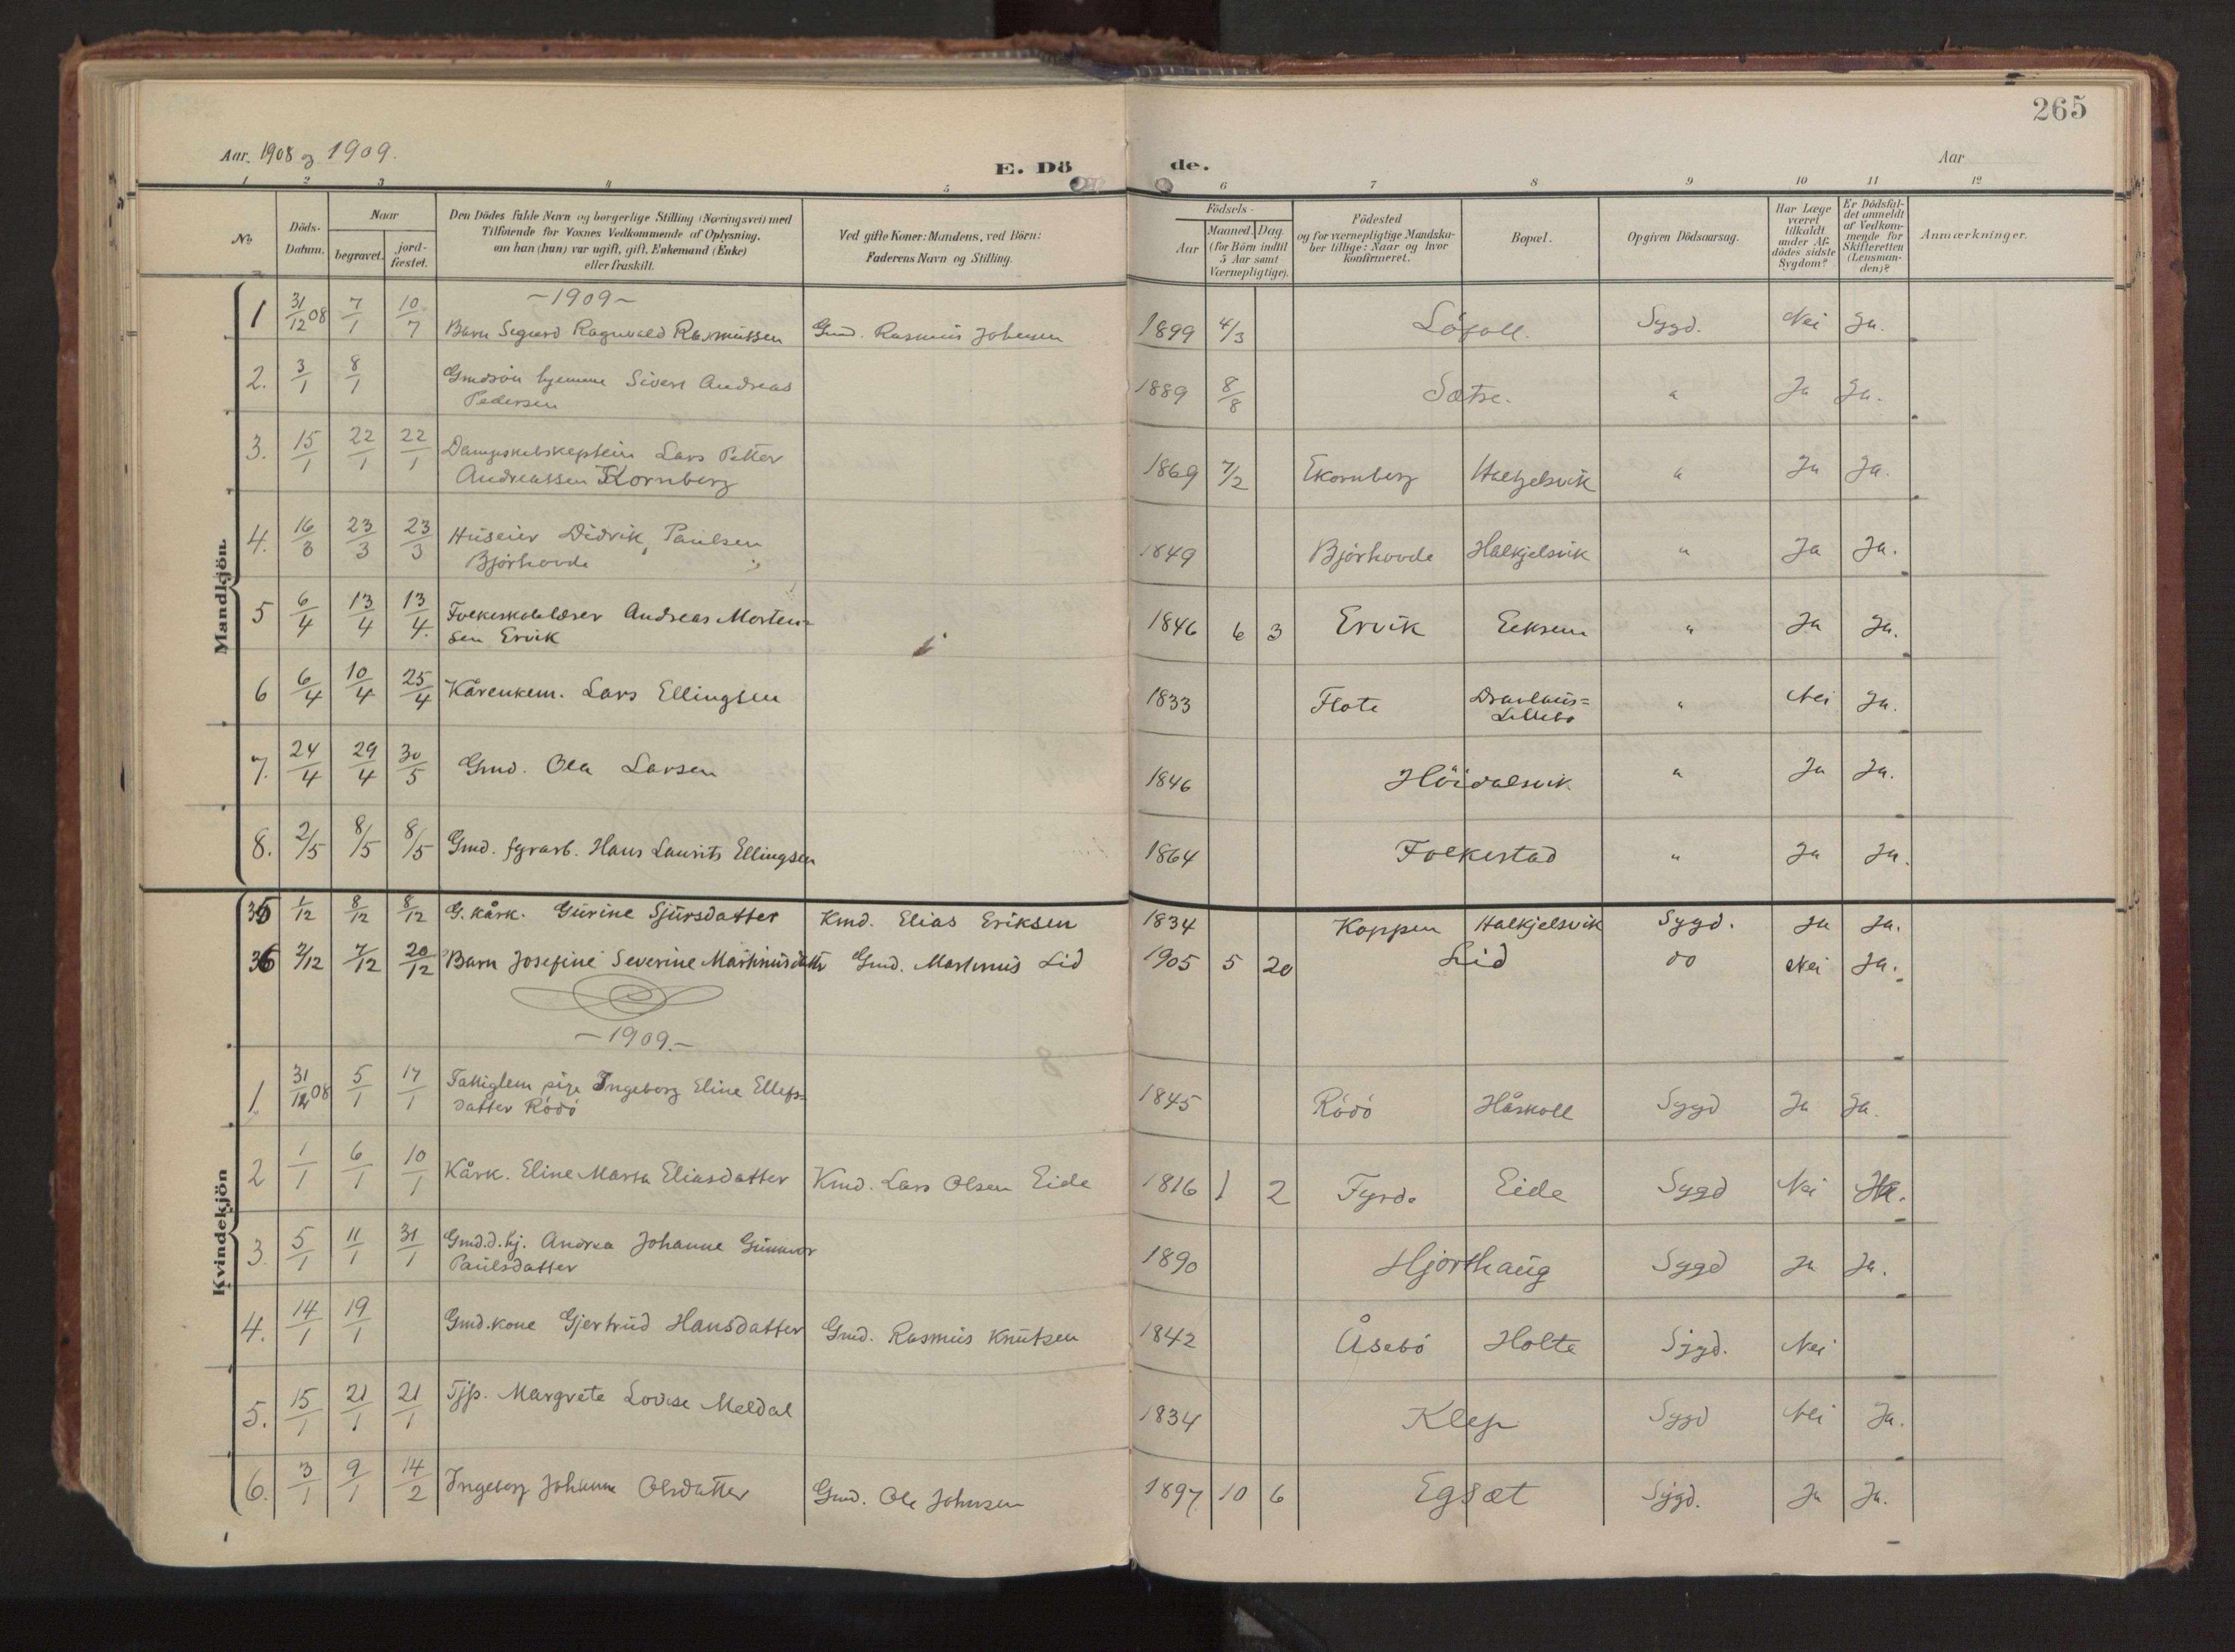 265
Aar. 1908 og 1909.
E. Dö de.
Aar
1 2 3 4 5 6 7 8 9 10 11 12
No
Döds-Datum.
Naar
begravet.
jord-fæstet.
Den Dödes fulde Navn og borgerlige Stilling (Næringsvei) med
Tilföiende for Voxnes Vedkommende af Oplysning,
om han (hun) var ugift, gift, Enkemand (Enke)
eller fraskilt.
Ved gifte Koner: Mandens, ved Börn:
Faderens Navn og Stilling.
Födsels-
Aar
Maaned. Dag.
(for Börn indtil
5 Aar samt
Værnepligtige).
Födested
og for værnepligtige Mandska-
ber tillige: Naar og hvor
konfirmeret.
Bopæl.
Opgiven Dödsaarsag.
Har Læge
været
tilkaldt
under Af-
dödes sidste
Sygdom?
Er Dödsfal-
det anmeldt
af Vedkom-
mende for
Skifteretten
(Lensman-
den)?
Anmærkninger.
Mandkjön.
— 1909 —
1 31/12 08 7/1 10/7 Barn Sigurd Ragnvald Rasmussen Gmd. Rasmus Johnsen 1899 4/3 Löfoll. Sygd. Nei Ja.
2. 3/1 8/1 Gmdsön hjemme Sivert Andreas
Pedersen 1889 8/8 Sætre. " Ja Ja.
3. 15/1 22/1 22/1 Dampskibskaptein Lars Petter
Andreassen Ekornberg 1869 7/2 Ekornberg Halkjelsvik " Ja Ja.
4. 16/3 23/3 23/3 Huseier Didrik Paulsen
Bjørhovde 1849 Bjørhovde Halkjelsvik " Ja Ja.
5 6/4 13/4 13/4. Folkeskolelærer Andreas Morten=
sen Ervik 1846 6 3 Ervik Eeksem " Ja Ja.
6 6/4 10/4 25/4 Kårenkem. Lars Ellingsen 1833 Flote Dravlaus=
Lillebø " Nei Ja.
7. 24/4 29/4 30/5 Gmd. Ola Larsen 1846 Höidalsvik " Ja Ja.
8. 2/5 8/5 8/5 Gmd. fyrarb. Hans Laurits Ellingsen 1864 Folkestad " Ja Ja.
Kvindekjön
35 1/12 8/12 8/12 G. kårk. Gurine Sjursdatter Kmd. Elias Eriksen 1834 Koppen Halkjelsvik Sygd. Ja Ja.
36 2/12 7/12 20/12 Barn Josefine Severine Martinusdattr Gmd. Martinus Lid 1905 5 20 Lid do Nei Ja.
— 1909. —
1 31/12 08 5/1 17/1 Fattiglem pige Ingeborg Eline Ellefs=
datter Rödö 1845 Rödö Håskoll Sygd Ja Ja.
2 1/1 6/1 10/1 Kårk. Eline Marta Eliasdatter Kmd. Lars Olsen Eide 1816 1 2 Fyrde Eide Sygd Nei Ja.
3. 5/1 11/1 31/1 Gmd.d. hj. Andrea Johanne Gunnvor
Paulsdatter 1890 Hjorthaug Sygd Ja Ja.
4. 14/1 19/1 Gmd.kone Gjertrud Hansdatter Gmd. Rasmus Knutsen 1842 Åsebö Holte Sygd. Nei
5. 15/1 21/1 21/1 Tjp. Margrete Lovise Meldal 1834 Klep Sygd Nei Ja.
6. 3/1 9/1 14/2 Ingeborg Johanne Olsdatter Gmd. Ole Johnsen 1897 10 6 Egsæt Sygd. Ja Ja.